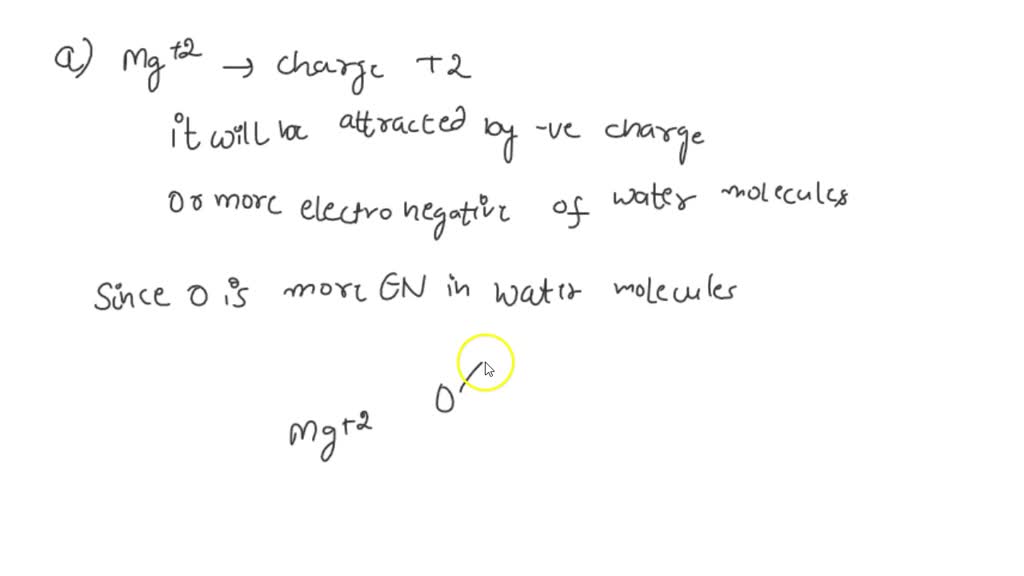 a) Mg+2 → charge +2
it will be attracted by -ve charge
Or more electronegative of water molecules
Since O is more EN in water molecules
O
Mg+2